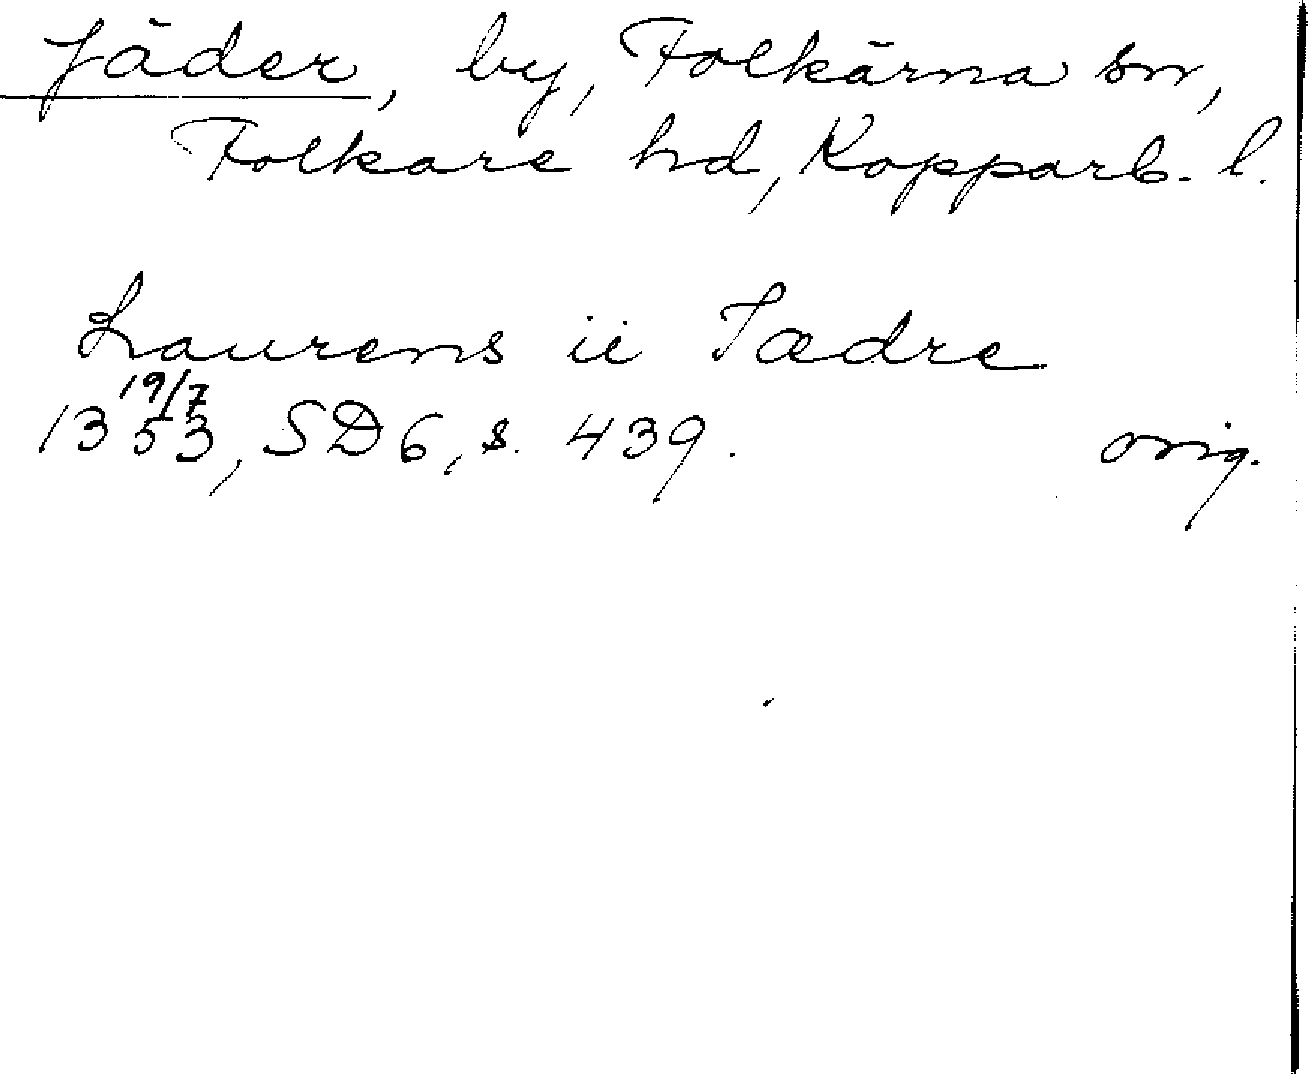 Jäder, by, Folkärna sn,
Folkare hd, Kopparb. l.
Laurens ii Iædre
19/7
1353, SD6, s. 439. orig.